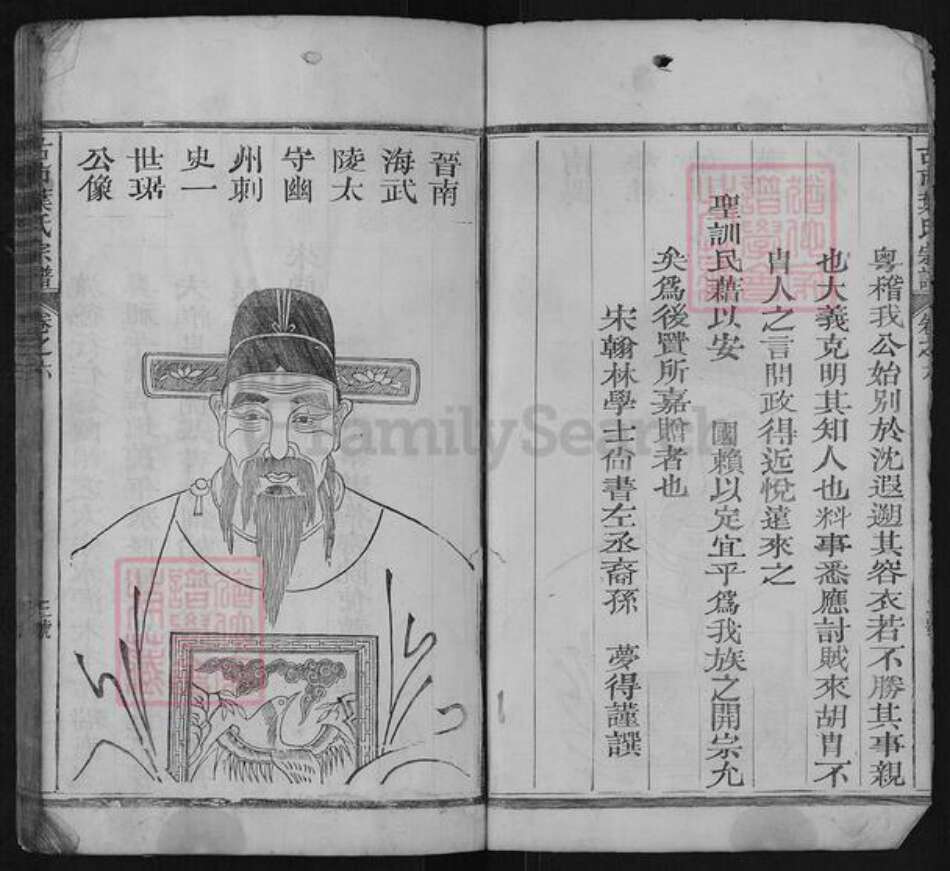 粵稽我公始別於沈遐遡其容衣若不勝其事親
也大義克明其知人也料事悉應討賊來胡冑不
冑人之言問政得近悅遠來之
聖訓民藉以安 國賴以定宜乎爲我族之開宗允
矣爲後賢所嘉贈者也
宋翰林學士尙書左丞裔孫 夢得謹譔
晉南
海武
陵太
守幽
州刺
史一
世琚
公像
葉氏宗譜
卷之六
FamilySearch